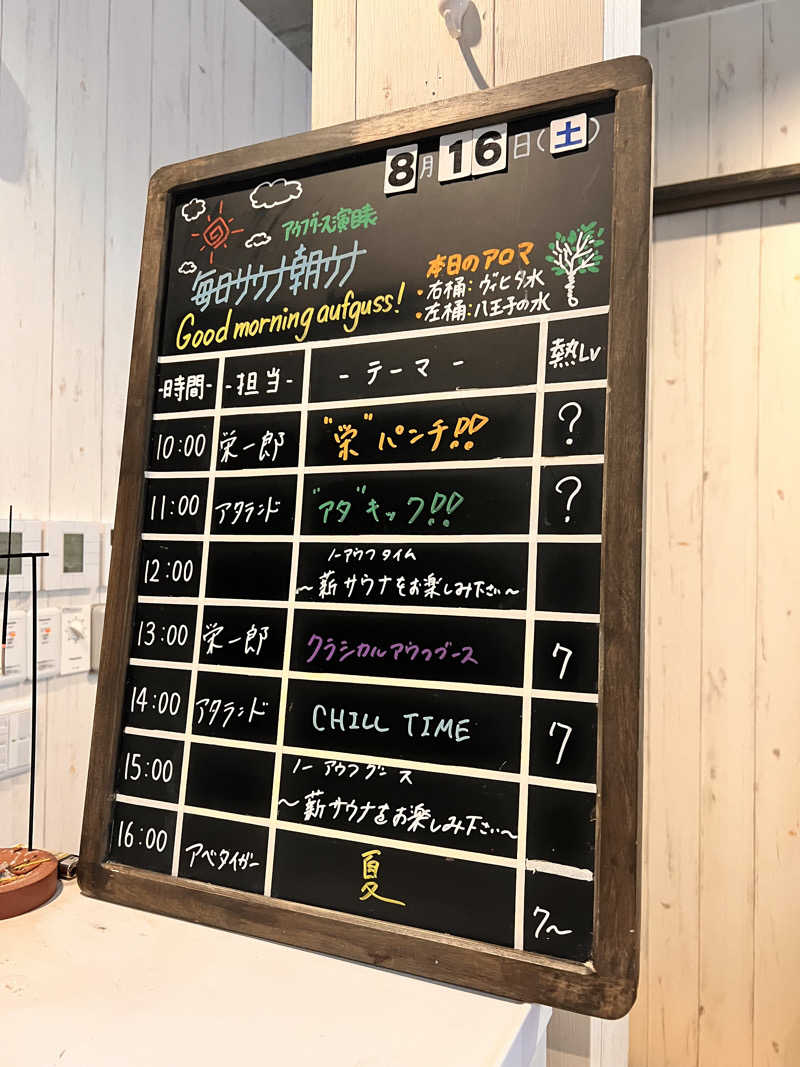 8月16日(土)
アウフグース演目表
毎日サウナ朝ウナ
Good morning aufguss!
本日のアロマ
・右桶:ヴィヒタ水
・左桶:八王子の水
-時間- -担当- -テーマ- 熱Lv
10:00 栄一郎 "栄"パンチ!! ?
11:00 アタランド "アタ"キック!! ?
12:00 ノーアウフタイム
~薪サウナをお楽しみ下さい~
13:00 栄一郎 クラシカルアウフグース 7
14:00 アタランド CHILL TIME 7
15:00 ノーアウフグース
~薪サウナをお楽しみ下さい~
16:00 アベタイガー 夏 7~